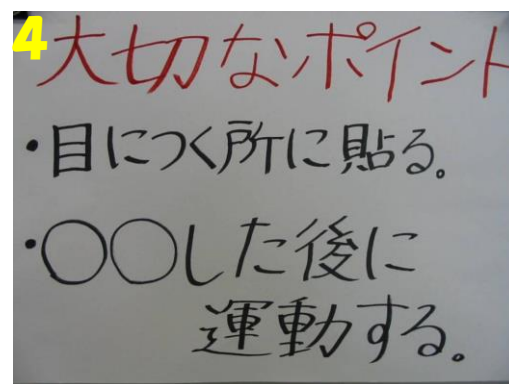 4
大切なポイント
・目につく所に貼る。
・○○した後に
運動する。